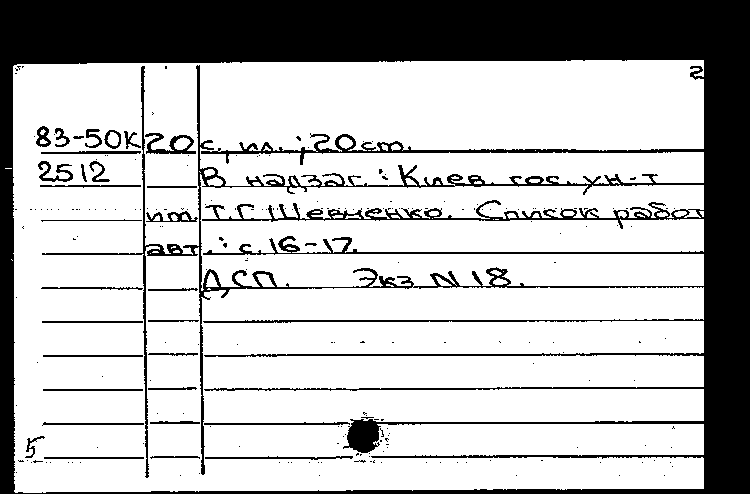 2
83-50К 20 с., ил.; 20 см.
2512 В надзаг.: Киев. гос. ун-т
им. Т.Г. Шевченко. Список работ
авт.: с. 16-17.
ДСП. Экз N 18.
5